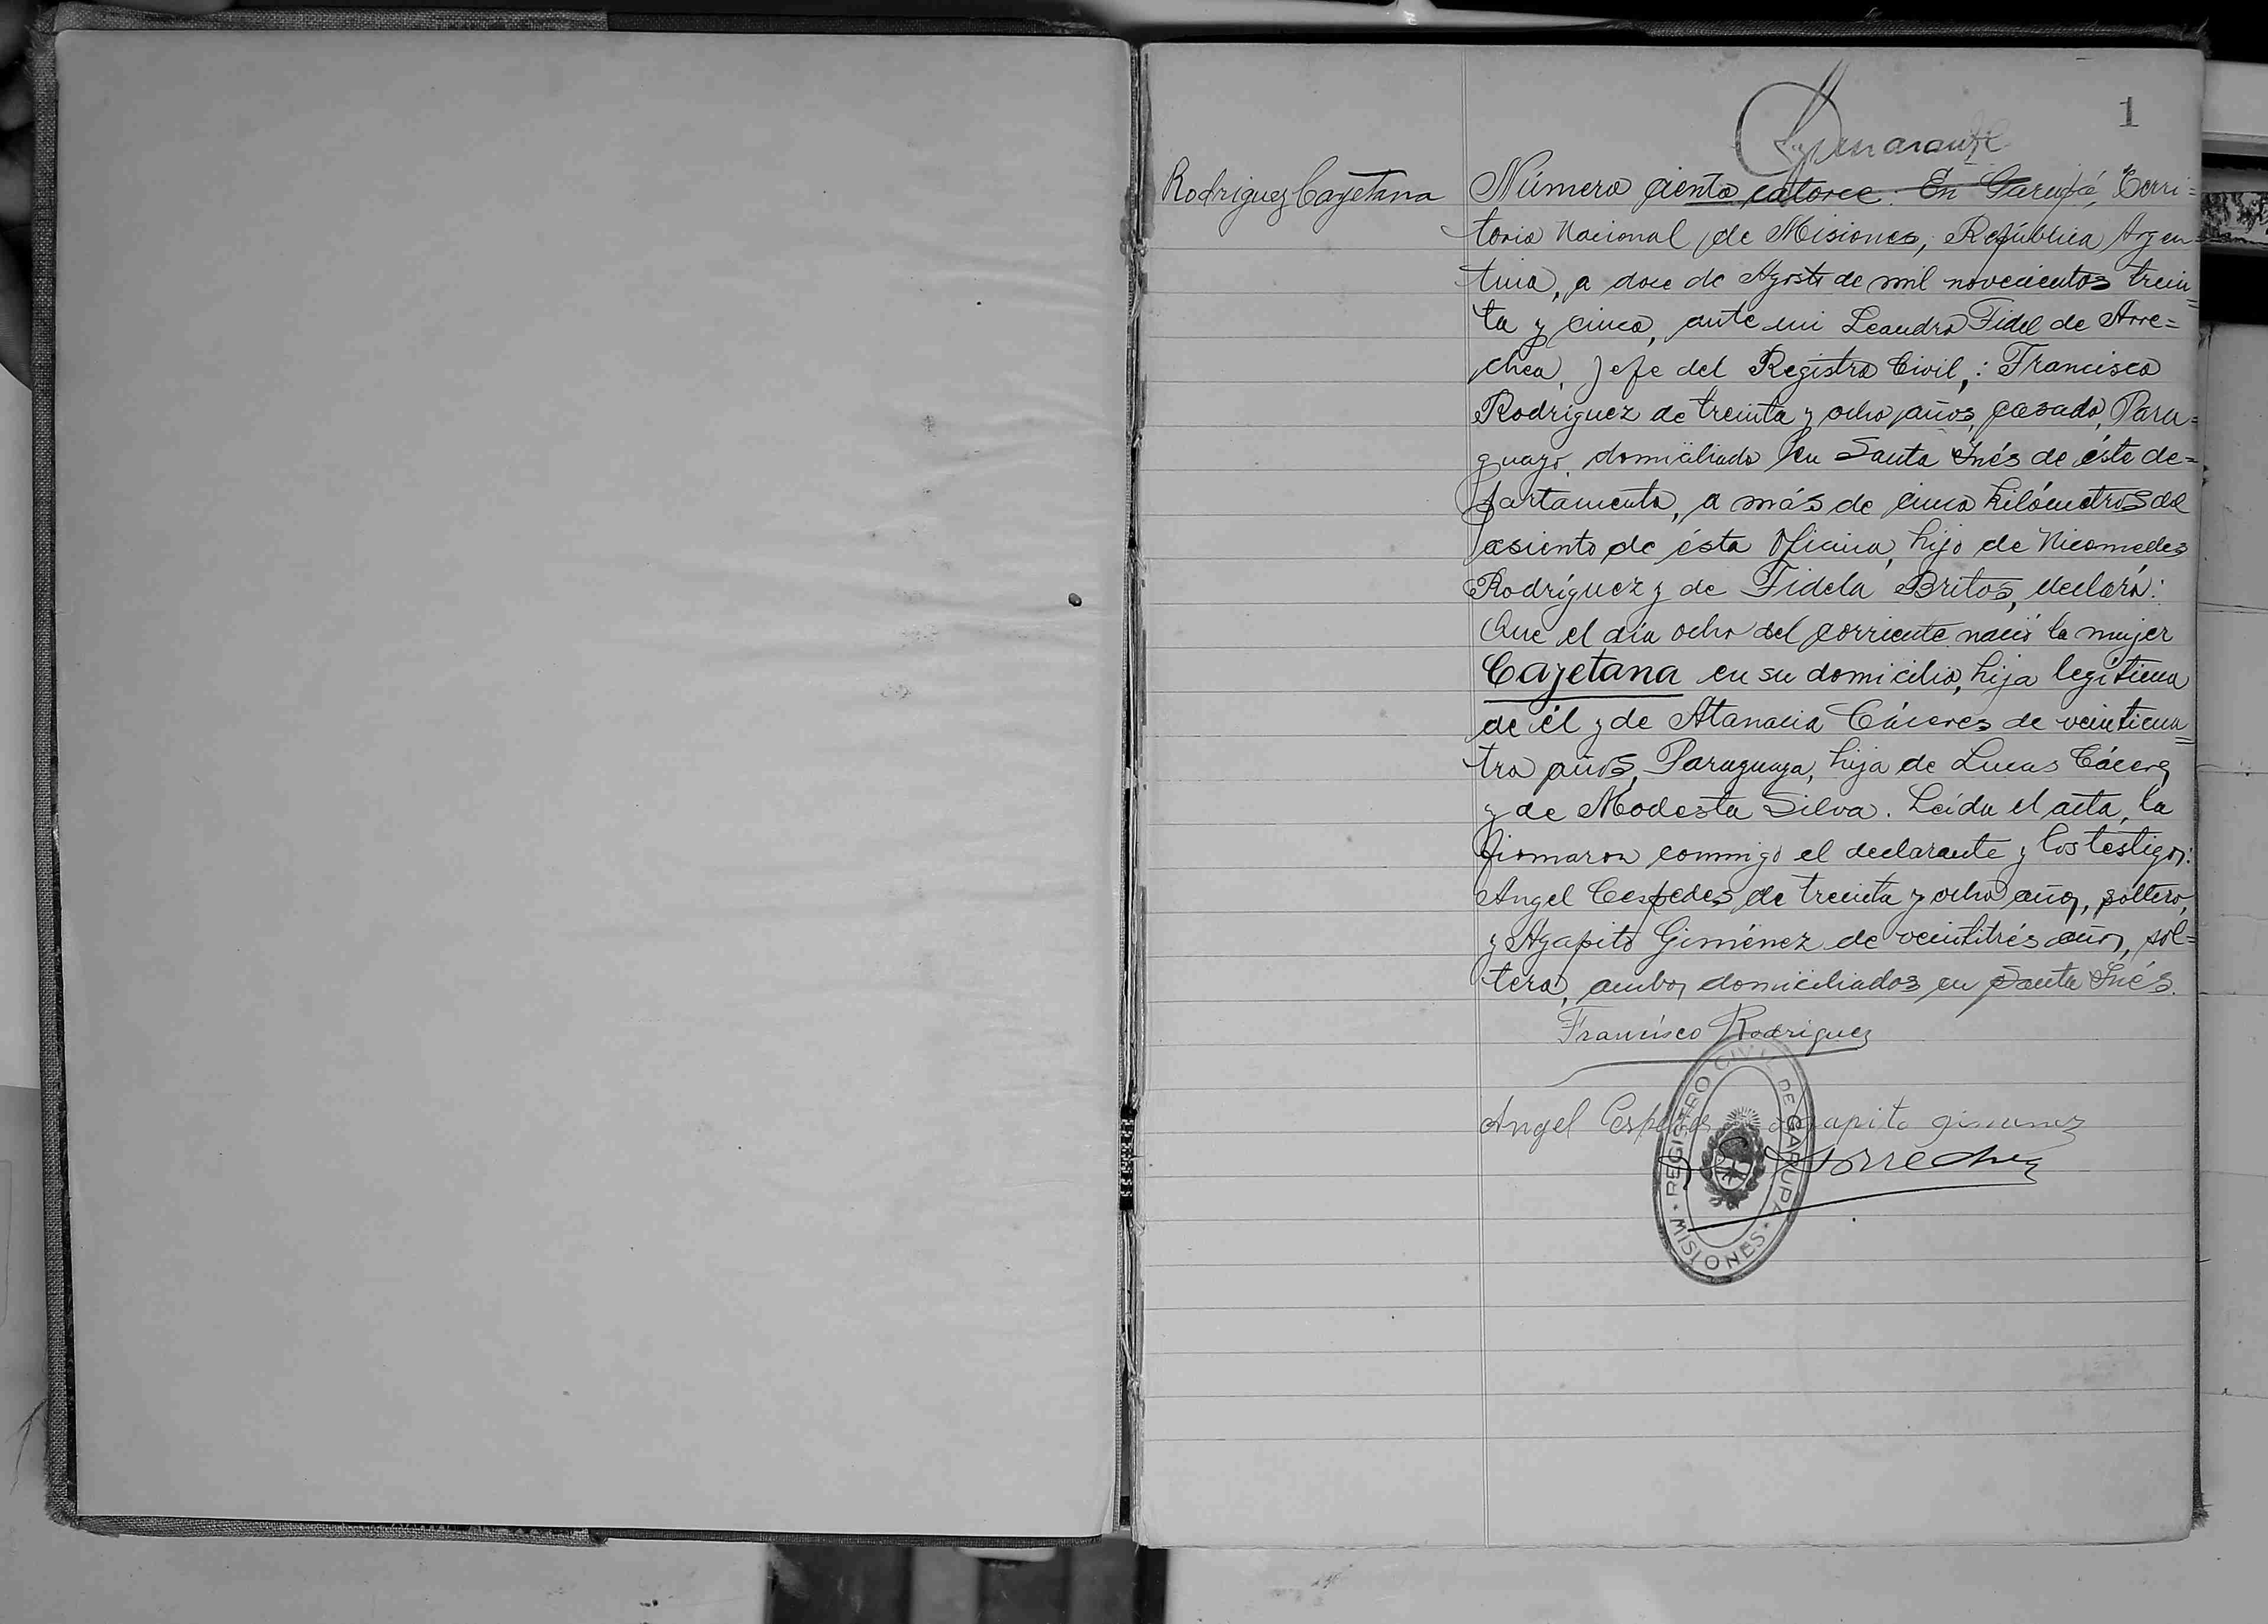 1
Rodriguez Cayetana
Número ciento catorce. En Garupá, Terri=
torio Nacional de Misiones, República Argen=
tina, a doce de Agosto de mil novecientos trein=
ta y cinco, ante mi Leandro Fidel de Arre=
chea, Jefe del Registro Civil,: Francisco
Rodríguez de treinta y ocho años, casado, Para=
guayo, domiciliado en Santa Inés de éste de=
partamento, a más de cinco kilómetros del
asiento de ésta Oficina, hijo de Nicomedes
Rodríguez y de Fidela Britos, declaró:
Que el día ocho del corriente nació la mujer
Cayetana en su domicilio, hija legítima
de él y de Atanacia Cáceres de veinticua=
tro años, Paraguaya, hija de Lucas Cáceres
y de Modesta Silva. Leída el acta, la
firmaron conmigo el declarante y los testigos:
Angel Cespedes de treinta y ocho años, soltero,
y Agapito Giménez de veintitrés años, sol=
tero, ambos domiciliados en Santa Inés.
Francisco Rodriguez
Angel Cespedes Agapito gimenez
Arrechea
REGISTRO CIVIL DE GARUPA
MISIONES